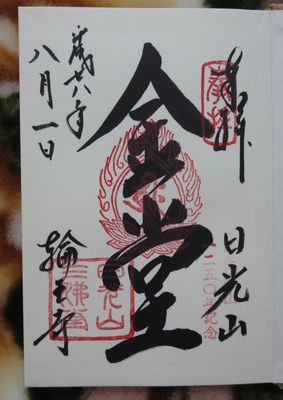 奉拝
日光山
一二五〇年記念
金堂
平成廿八年
八月一日
輪王寺
日光山
三佛堂